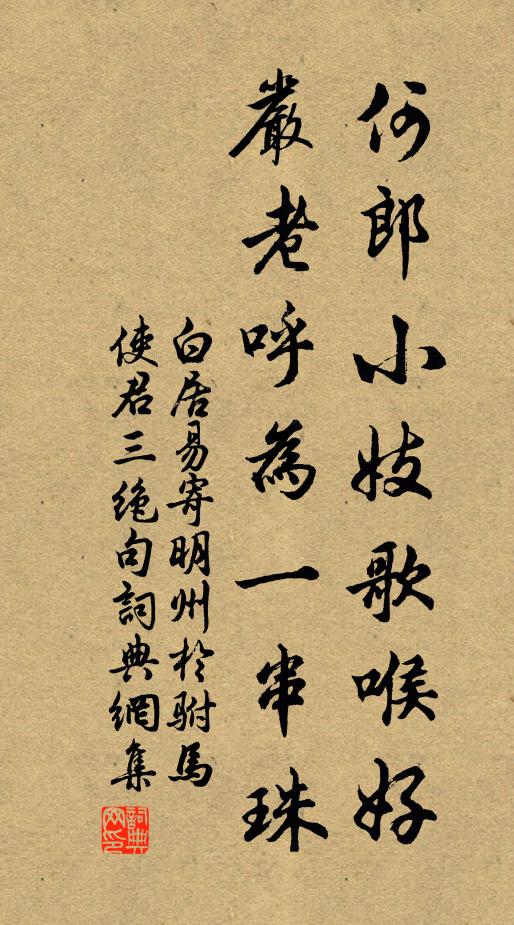 何郎小妓歌喉好
嚴老呼為一串珠
白居易寄明州於駙馬
使君三絕句詞典網集
詞典
网印